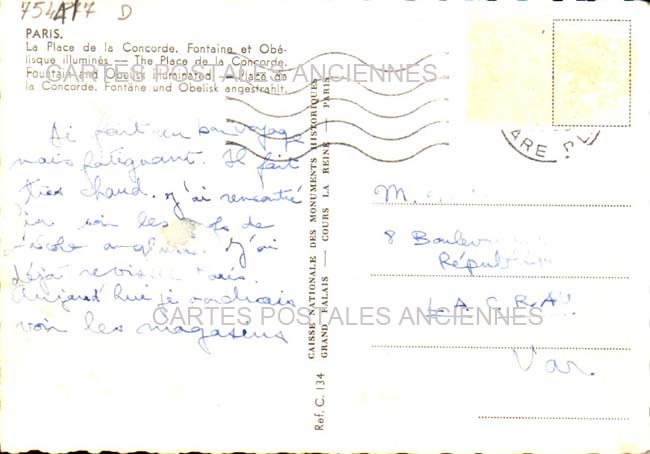 754177 D
PARIS.
La Place de la Concorde. Fontaine et Obé-
lisque illuminés — The Place de la Concorde.
Fountain and Obelisk illuminated — Place de
la Concorde. Fontäne und Obelisk angestrahlt.
CARTES POSTALES ANCIENNES
Ai fait un bon voyage
mais fatiguant. Il fait
très chaud. J'ai rencontré
les profs de
J'ai
déjà Paris.
Aujourd'hui je voudrais
voir les magasins
CARTES POSTALES ANCIENNES
CAISSE NATIONALE DES MONUMENTS HISTORIQUES
GRAND PALAIS — COURS LA REINE — PARIS
Ref. C. 134
ARE PL
M.
8 Boulev
Républi
LA CRAU
Var